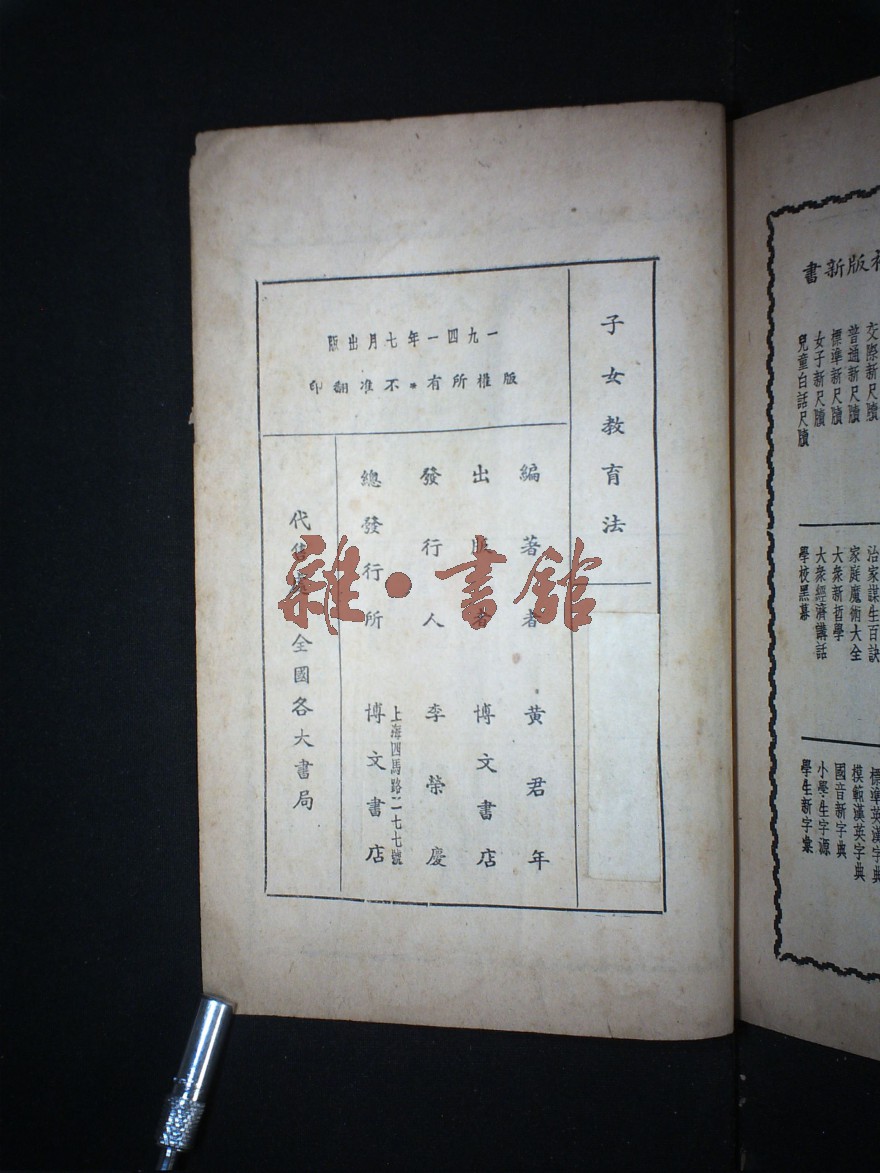 子女教育法
一九四一年七月出版
版權所有·不准翻印
編著者 黄君年
出版者 博文書店
發行人 李榮慶
總發行所 博文書店
上海四馬路二七七號
代售處 全國各大書局
雜·書館
版新書
交際新尺牘
普通新尺牘
標準新尺牘
女子新尺牘
兒童白話尺牘
治家謀生百訣
家庭魔術大全
大衆新哲學
大衆經濟講話
學校黑幕
標準英漢字典
模範漢英字典
國音新字典
小學生字源
學生新字彙